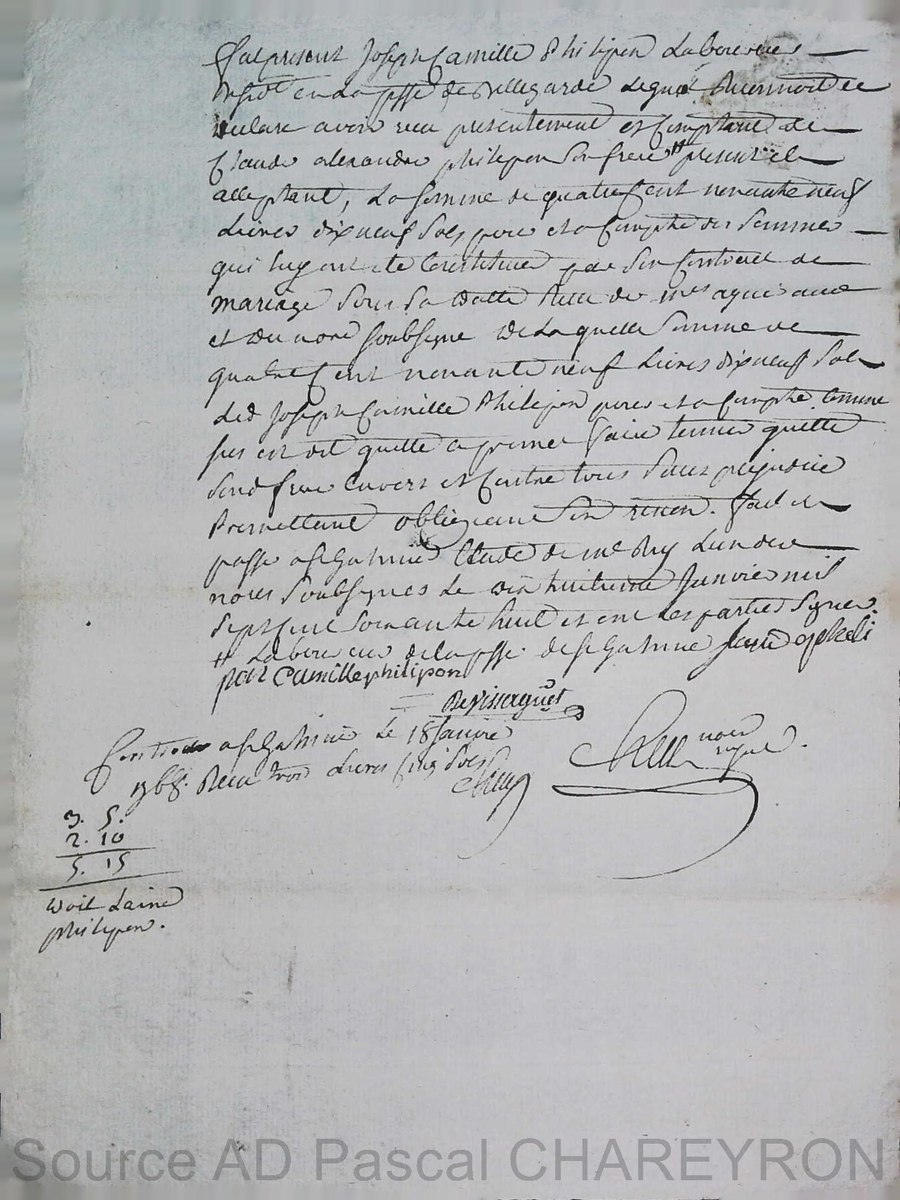 fut present Joseph Camille Philipon Laboureur
en la psse de Bellegarde Lequel
declare avoir receu presentement et Comptant de
Claude alexandre philipon son frere # present et
acceptant, La somme de quatre Cent nonante neuf
Livres dix neuf sols pour et a Compte des sommes
qui luy ont ete Constitué par son Contract de
mariage sous sa datte Receu de
et du noré soubsigne de Laquelle somme de
quatre Cent nonante neuf Livres dix neuf sols
Led Joseph Camille Philipon pour et a Compte Comme
est dit quitte a promet faire tenir quitte
sond frere envers et Contre tous sans prejudice
Promettant obligeant renon. fait et
passé a st Galmier Etude de me Rey Lun des
nores soubsignes Le dix huitieme Janvier mil
sept cent soixante huit et ont Les parties signé.
# Laboureur de la psse de st Galmier
Camille philipon
Controlé a st Galmier Le 18 Janvier
1768. Receu trois Livres Cinq sols
3. 5.
2. 10
5. 15
philipon.
Source AD Pascal CHAREYRON